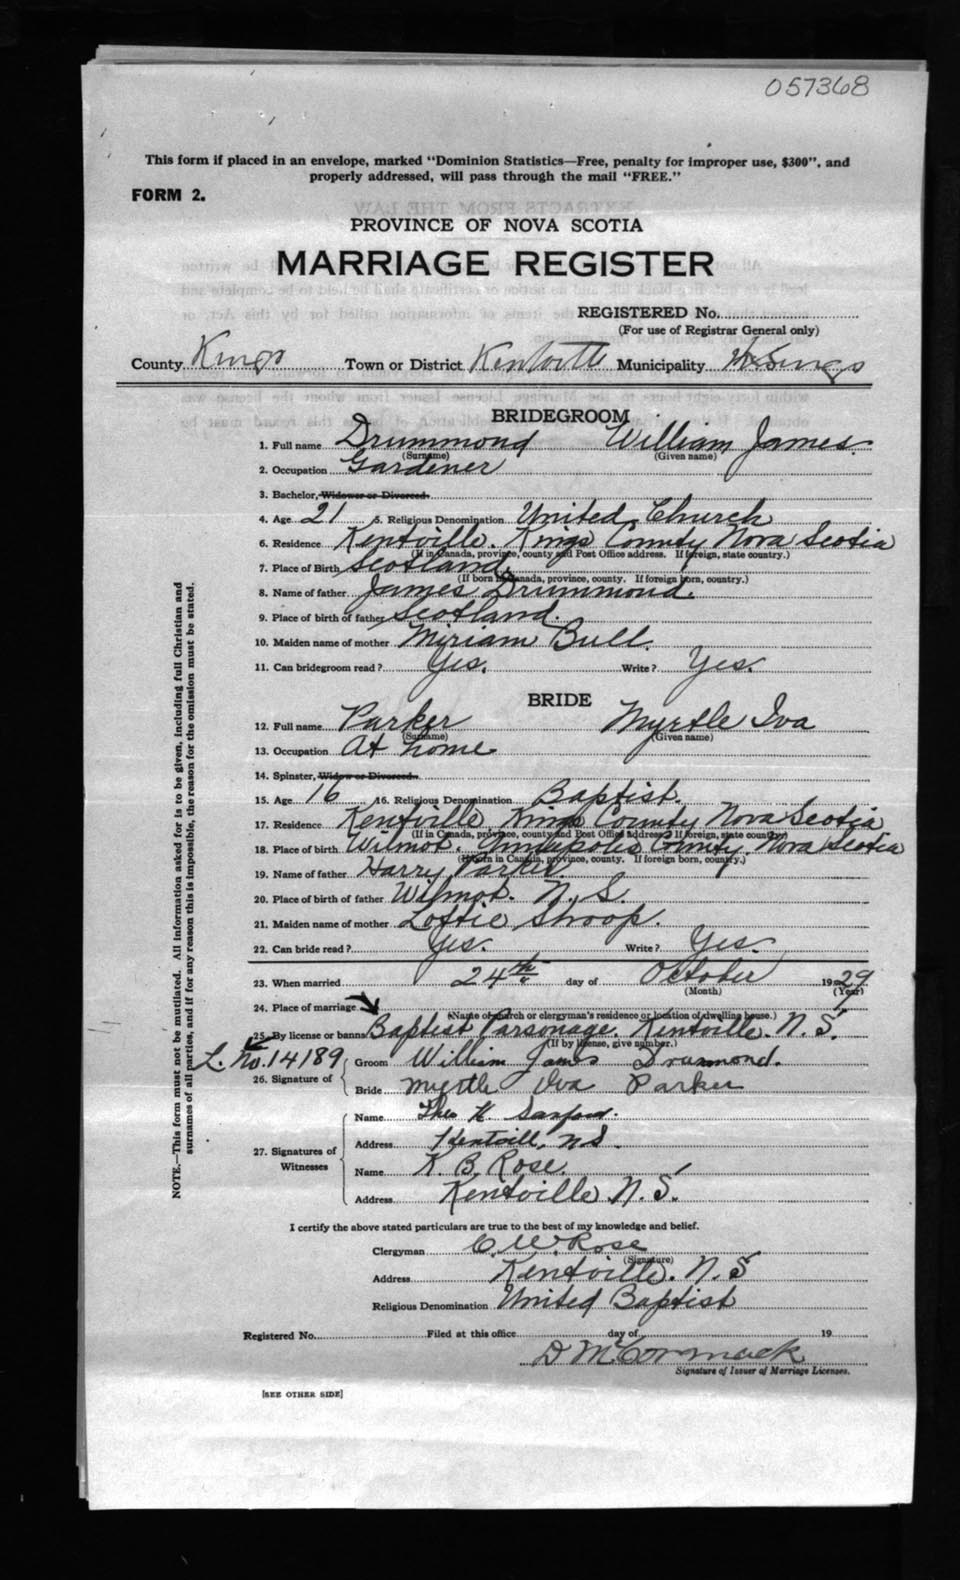 057368
This form if placed in an envelope, marked "Dominion Statistics—Free, penalty for improper use, $300", and
properly addressed, will pass through the mail "FREE."
FORM 2.
PROVINCE OF NOVA SCOTIA
MARRIAGE REGISTER
REGISTERED No.
(For use of Registrar General only)
County Kings Town or District Kentville Municipality Kings
BRIDEGROOM
1. Full name Drummond William James
(Surname) (Given name)
2. Occupation Gardener
3. Bachelor, Widower or Divorced
4. Age 21 5. Religious Denomination United Church
6. Residence Kentville. Kings County Nova Scotia
(If in Canada, province, county and Post Office address. If foreign, state country.)
7. Place of Birth Scotland.
(If born in Canada, province, county. If foreign born, country.)
8. Name of father James Drummond.
9. Place of birth of father Scotland.
10. Maiden name of mother Miriam Bull.
11. Can bridegroom read? Yes. Write? Yes.
BRIDE
12. Full name Parker Myrtle Iva
(Surname) (Given name)
13. Occupation At home
14. Spinster, Widow or Divorced
15. Age 16 16. Religious Denomination Baptist.
17. Residence Kentville Kings County Nova Scotia
(If in Canada, province, county and Post Office address. If foreign, state country)
18. Place of birth Wilmot. Annapolis County. Nova Scotia
(If born in Canada, province, county. If foreign born, country.)
19. Name of father Harry Parker.
20. Place of birth of father Wilmot. N. S.
21. Maiden name of mother Lottie Stroop.
22. Can bride read? Yes. Write? Yes.
23. When married 24th day of October 1929
(Month) (Year)
24. Place of marriage
(Name of church or clergyman's residence or location of dwelling house.)
25. By license or banns Baptist Parsonage. Kentville. N. S.
(If by license, give number.)
L. No. 14189
26. Signature of
Groom William James Drummond.
Bride Myrtle Iva Parker
27. Signatures of Witnesses
Name Theo H. Sanford.
Address Kentville, N.S.
Name K. B. Rose.
Address Kentville N. S.
I certify the above stated particulars are true to the best of my knowledge and belief.
Clergyman C. W. Rose
(Signature)
Address Kentville. N. S
Religious Denomination United Baptist
Registered No. Filed at this office day of 19
D McCormack
Signature of Issuer of Marriage Licenses.
[SEE OTHER SIDE]
NOTE.—This form must not be mutilated. All information asked for is to be given, including full Christian and
surnames of all parties, and if for any reason this is impossible, the reason for the omission must be stated.